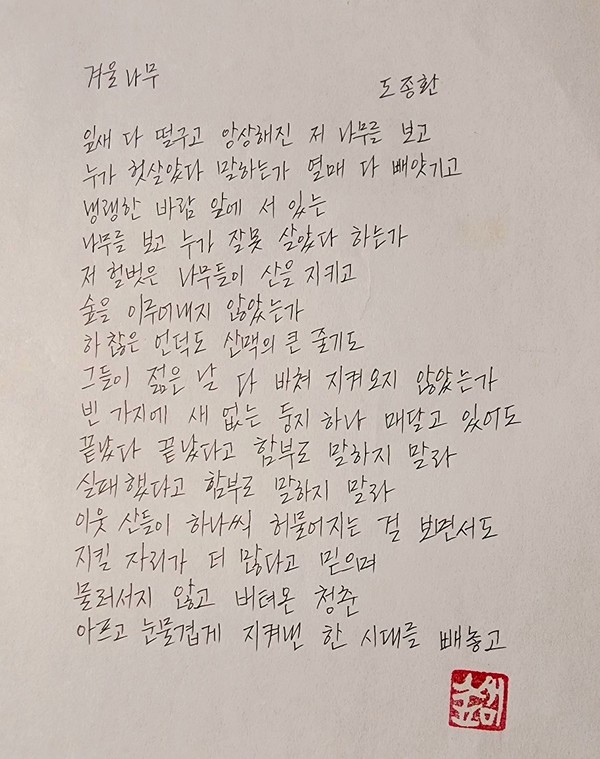 겨울나무
도종환
잎새 다 떨구고 앙상해진 저 나무를 보고
누가 헛살았다 말하는가 열매 다 빼앗기고
냉랭한 바람 앞에 서 있는
나무를 보고 누가 잘못 살았다 하는가
저 헐벗은 나무들이 산을 지키고
숲을 이루어내지 않았는가
하찮은 언덕도 산맥의 큰 줄기도
그들이 젊은 날 다 바쳐 지켜오지 않았는가
빈 가지에 새 없는 둥지 하나 매달고 있어도
끝났다 끝났다고 함부로 말하지 말라
실패했다고 함부로 말하지 말라
이웃 산들이 하나씩 허물어지는 걸 보면서도
지킬 자리가 더 많다고 믿으며
물러서지 않고 버텨온 청춘
아프고 눈물겹게 지켜낸 한 시대를 빼놓고